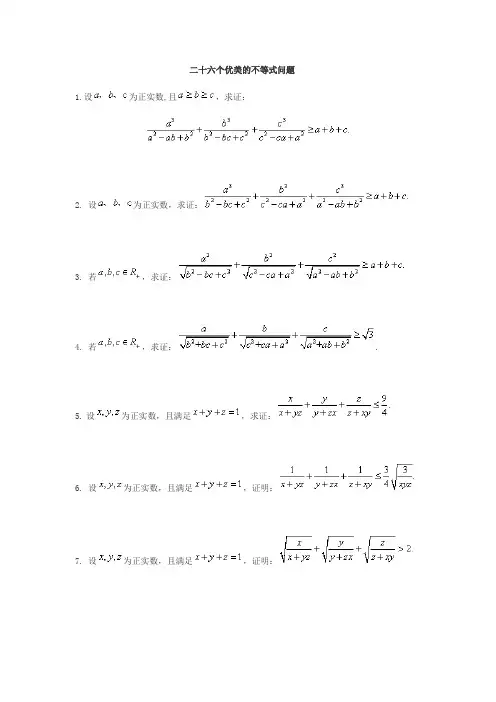 二十六个优美的不等式问题
1.设 a、b、c 为正实数,且 a≥b≥c, 求证:
a³/(a²-ab+b²) + b³/(b²-bc+c²) + c³/(c²-ca+a²) ≥ a+b+c.
2. 设 a、b、c 为正实数, 求证: a³/(b²-bc+c²) + b³/(c²-ca+a²) + c³/(a²-ab+b²) ≥ a+b+c.
3. 若 a,b,c∈R₊, 求证: a²/√(b²-bc+c²) + b²/√(c²-ca+a²) + c²/√(a²-ab+b²) ≥ a+b+c.
4. 若 a,b,c∈R₊, 求证: a/√(b²+bc+c²) + b/√(c²+ca+a²) + c/√(a²+ab+b²) ≥ √3.
5.设 x,y,z 为正实数, 且满足 x+y+z=1, 求证: x/(x+yz) + y/(y+zx) + z/(z+xy) ≤ 9/4.
6. 设 x,y,z 为正实数, 且满足 x+y+z=1, 证明: 1/(x+yz) + 1/(y+zx) + 1/(z+xy) ≤ 3/4 √(3/xyz).
7. 设 x,y,z 为正实数, 且满足 x+y+z=1, 证明: √(x/(x+yz)) + √(y/(y+zx)) + √(z/(z+xy)) > 2.